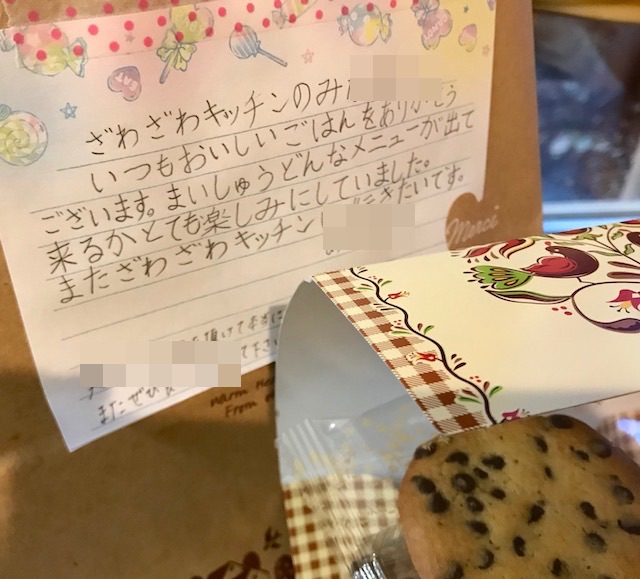 ざわざわキッチンのみ
いつもおいしいごはんをありがとう
ございます。まいしゅうどんなメニューが出て
来るかとても楽しみにしていました。
またざわざわキッチン きたいです。
頂けて
下さい
またぜひ
Merci
Warm
From